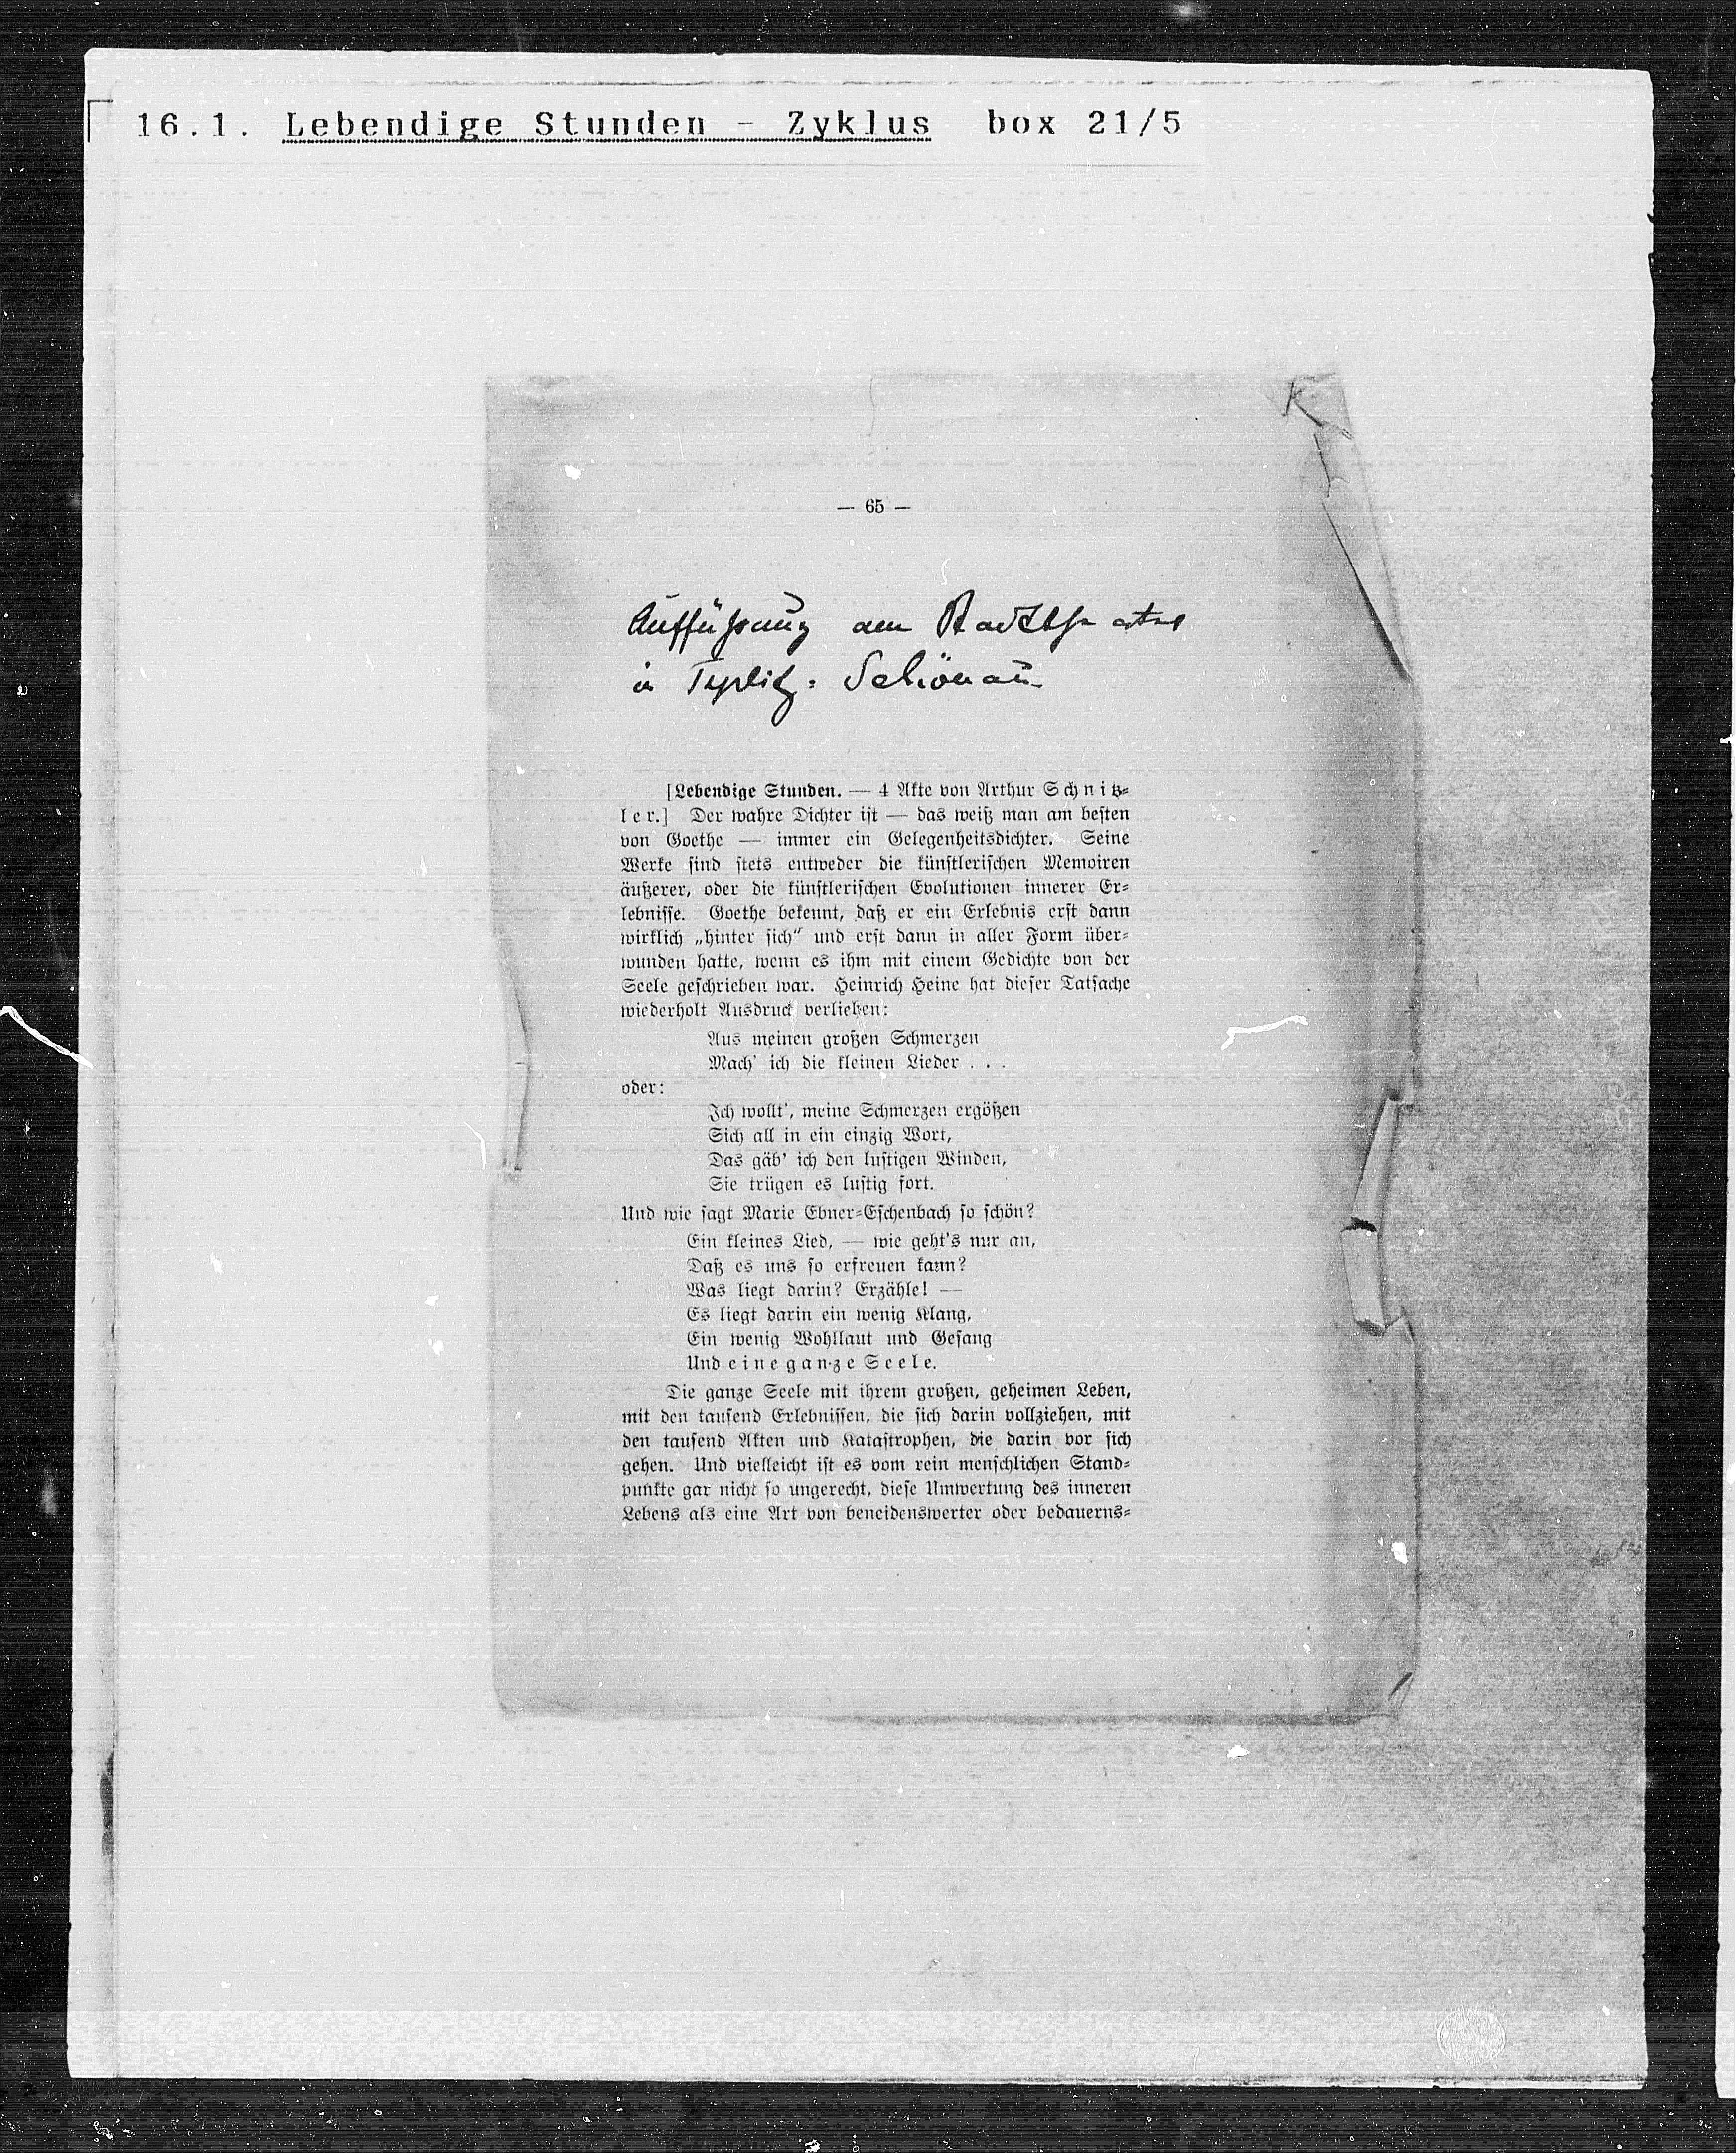 16.1. Lebendige Stunden - Zyklus box 21/5
— 65 —
Aufführung am Stadttheater
in Teplitz-Schönau
[Lebendige Stunden. — 4 Akte von Arthur Schnitz-
ler.] Der wahre Dichter ist — das weiß man am besten
von Goethe — immer ein Gelegenheitsdichter. Seine
Werke sind stets entweder die künstlerischen Memoiren
äußerer, oder die künstlerischen Evolutionen innerer Er-
lebnisse. Goethe bekennt, daß er ein Erlebnis erst dann
wirklich „hinter sich“ und erst dann in aller Form über-
wunden hatte, wenn es ihm mit einem Gedichte von der
Seele geschrieben war. Heinrich Heine hat dieser Tatsache
wiederholt Ausdruck verliehen:
Aus meinen großen Schmerzen
Mach' ich die kleinen Lieder . . .
oder:
Ich wollt', meine Schmerzen ergößen
Sich all in ein einzig Wort,
Das gäb' ich den lustigen Winden,
Sie trügen es lustig fort.
Und wie sagt Marie Ebner-Eschenbach so schön?
Ein kleines Lied, — wie geht's nur an,
Daß es uns so erfreuen kann?
Was liegt darin? Erzähle! —
Es liegt darin ein wenig Klang,
Ein wenig Wohllaut und Gesang
Und eine ganze Seele.
Die ganze Seele mit ihrem großen, geheimen Leben,
mit den tausend Erlebnissen, die sich darin vollziehen, mit
den tausend Akten und Katastrophen, die darin vor sich
gehen. Und vielleicht ist es vom rein menschlichen Stand-
punkte gar nicht so ungerecht, diese Umwertung des inneren
Lebens als eine Art von beneidenswerter oder bedauerns-